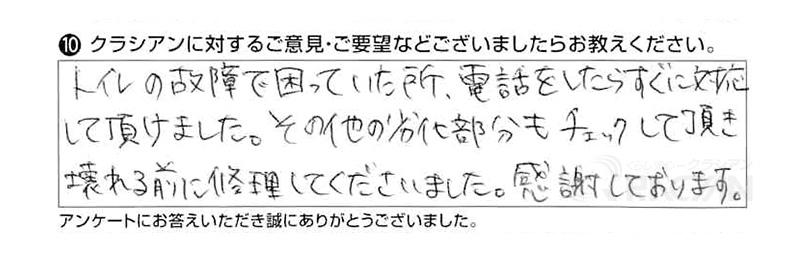 ⑩ クラシアンに対するご意見・ご要望などございましたらお教えください。
トイレの故障で困っていた所、電話をしたらすぐに対応
して頂けました。その他の劣化部分もチェックして頂き
壊れる前に修理してくださいました。感謝しております。
アンケートにお答えいただき誠にありがとうございました。